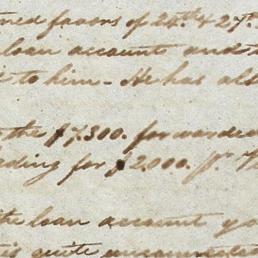 favors of 24th & 27th
loan accounts and
to him - He has als
the $7,300. forwarded
ding for $2,000. pr.
loan account yo
is quite unconnected